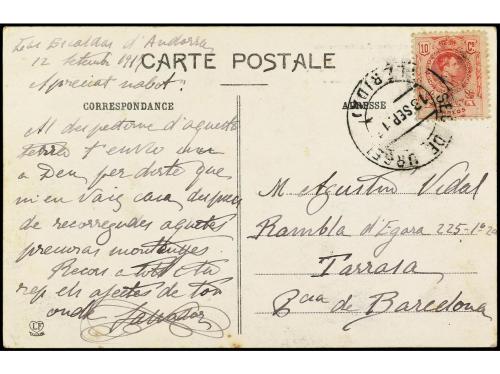 Las Escaldas d'Andorra
12 Setembre 1917
Apreciat nabot:
CARTE POSTALE
CORRESPONDANCE
ADRESSE
Al despedirme d'aquesta
terra t'envio un
a Deu, per dirte que
m'en vaig cada
de recorregudes aquestes
montanyes.
Recors a tots i tu
rep els afectes de ton
oncle Salvador
10 Cs.
SEO DE URGEL
13 SEP. 1
(LERIDA)
M. Agustin Vidal
Rambla d'Egara 225-1º 2ª
Tarrasa
Bcia de Barcelona
LF